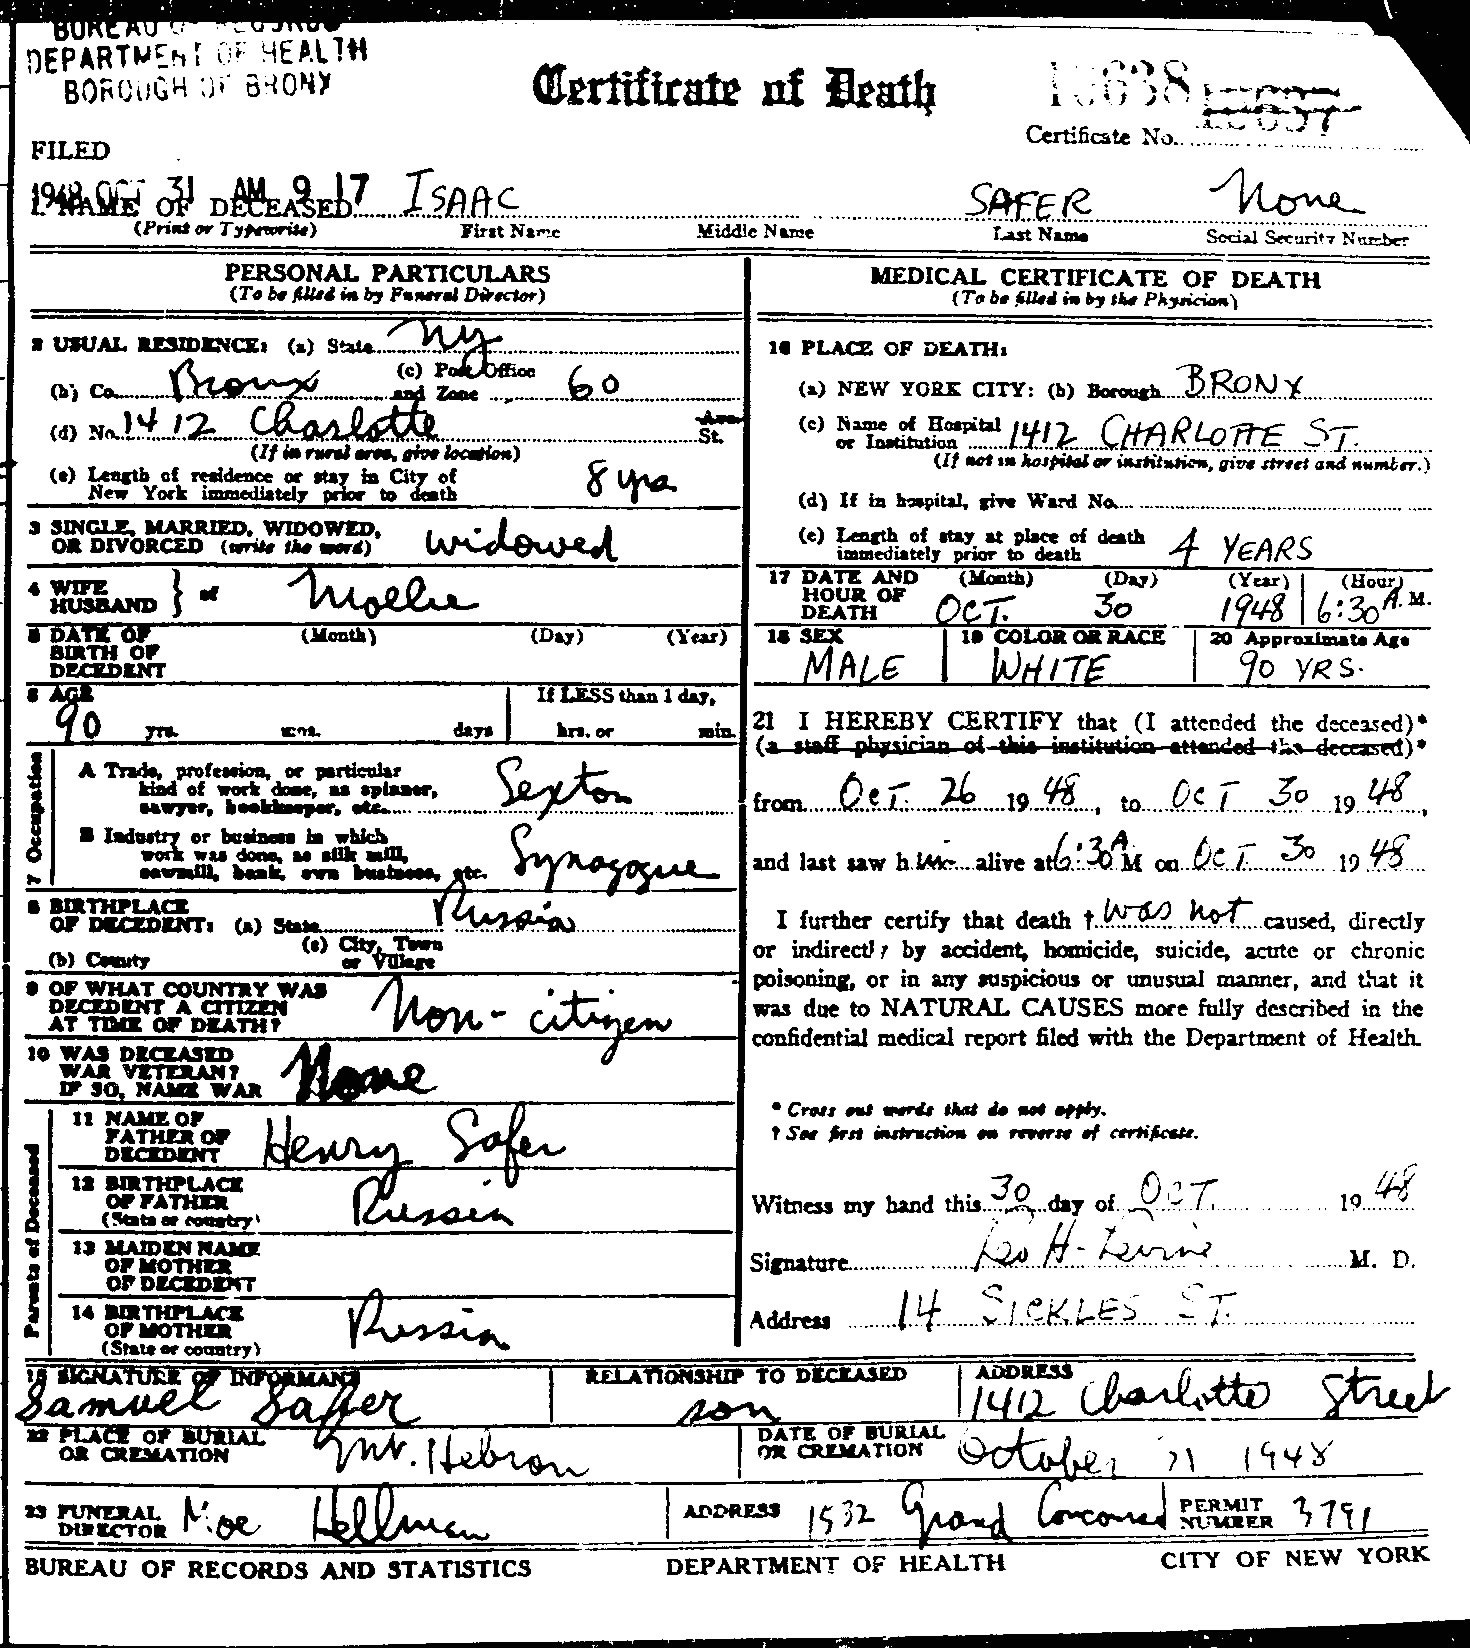 BUREAU OF RECORDS
DEPARTMENT OF HEALTH
BOROUGH OF BRONX
Certificate of Death
Certificate No.
FILED
1948 OCT 31 AM 9 17
1. NAME OF DECEASED ISAAC SAFER None
(Print or Typewrite) First Name Middle Name Last Name Social Security Number
PERSONAL PARTICULARS
(To be filled in by Funeral Director)
2 USUAL RESIDENCE: (a) State NY
(b) Co. Bronx (c) Post Office and Zone 60
(d) No. 1412 Charlotte Ave. St.
(If in rural area, give location)
(e) Length of residence or stay in City of
New York immediately prior to death 8 yrs
3 SINGLE, MARRIED, WIDOWED,
OR DIVORCED (write the word) widowed
4 WIFE
HUSBAND } of Mollie
5 DATE OF (Month) (Day) (Year)
BIRTH OF
DECEDENT
6 AGE If LESS than 1 day,
90 yrs. mos. days hrs. or min.
7 Occupation
A Trade, profession, or particular
kind of work done, as spinner,
sawyer, bookkeeper, etc. Sexton
B Industry or business in which
work was done, as silk mill,
sawmill, bank, own business, etc. Synagogue
8 BIRTHPLACE
OF DECEDENT: (a) State Russia
(b) County (c) City, Town or Village
9 OF WHAT COUNTRY WAS
DECEDENT A CITIZEN
AT TIME OF DEATH? Non-citizen
10 WAS DECEASED
WAR VETERAN?
IF SO, NAME WAR None
Parents of Deceased
11 NAME OF
FATHER OF
DECEDENT Henry Safer
12 BIRTHPLACE
OF FATHER
(State or country) Russia
13 MAIDEN NAME
OF MOTHER
OF DECEDENT
14 BIRTHPLACE
OF MOTHER
(State or country) Russia
MEDICAL CERTIFICATE OF DEATH
(To be filled in by the Physician)
16 PLACE OF DEATH:
(a) NEW YORK CITY: (b) Borough BRONX
(c) Name of Hospital
or Institution 1412 CHARLOTTE ST.
(If not in hospital or institution, give street and number.)
(d) If in hospital, give Ward No.
(e) Length of stay at place of death
immediately prior to death 4 YEARS
17 DATE AND (Month) (Day) (Year) (Hour)
HOUR OF
DEATH OCT. 30 1948 6:30 A.M.
18 SEX 19 COLOR OR RACE 20 Approximate Age
MALE WHITE 90 YRS.
21 I HEREBY CERTIFY that (I attended the deceased)*
(a staff physician of this institution attended the deceased)*
from OCT. 26 1948, to OCT 30 1948,
and last saw him alive at 6:30 A M on OCT 30 1948
I further certify that death † was not caused, directly
or indirectly by accident, homicide, suicide, acute or chronic
poisoning, or in any suspicious or unusual manner, and that it
was due to NATURAL CAUSES more fully described in the
confidential medical report filed with the Department of Health.
* Cross out words that do not apply.
† See first instruction on reverse of certificate.
Witness my hand this 30 day of OCT. 1948
Signature Leo H. Levine M. D.
Address 14 SICKLES ST.
15 SIGNATURE OF INFORMANT RELATIONSHIP TO DECEASED ADDRESS
Samuel Saffer son 1412 Charlotte Street
22 PLACE OF BURIAL
OR CREMATION Mt. Hebron
DATE OF BURIAL
OR CREMATION October 31 1948
23 FUNERAL
DIRECTOR Moe Hellman ADDRESS 1532 Grand Concourse PERMIT NUMBER 3791
BUREAU OF RECORDS AND STATISTICS DEPARTMENT OF HEALTH CITY OF NEW YORK